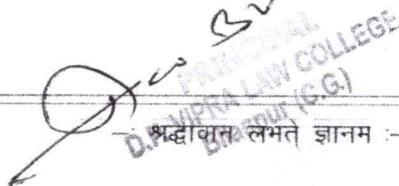 PRINCIPAL
D.P. VIPRA LAW COLLEGE
Bilaspur (C.G.)
—: श्रद्धावान लभते ज्ञानम :-